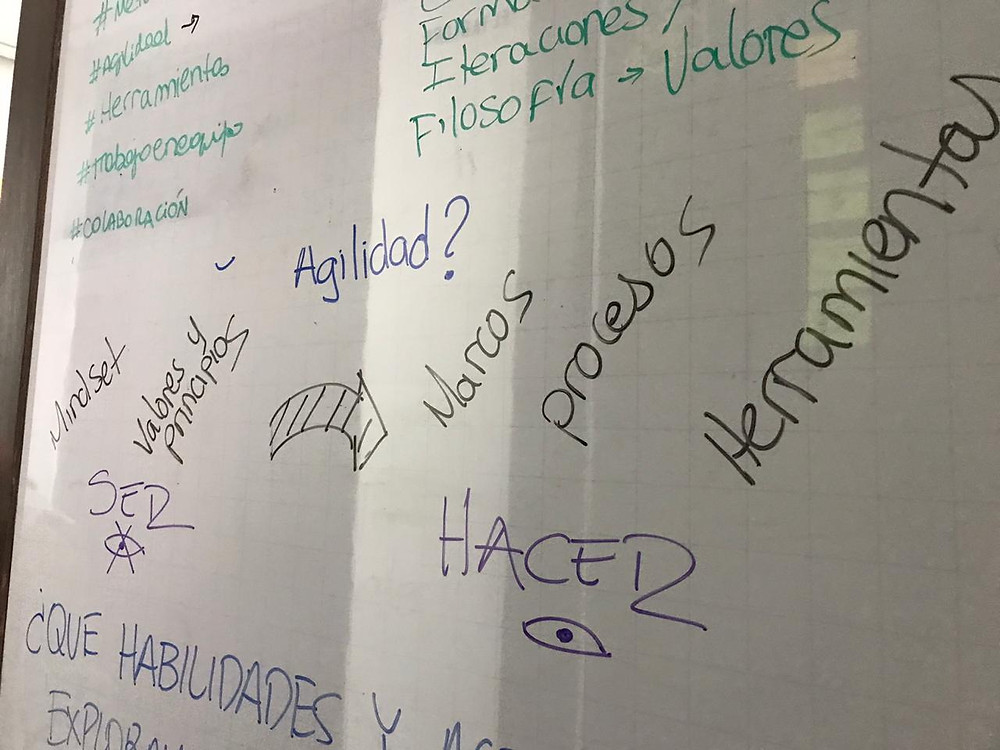 #Agilidad →
#Herramientas
#trabajoenequipo
#COLABORACIÓN
Iteraciones /
Filosofía → Valores
Agilidad?
Mindset
Valores y
principios
Marcos
procesos
Herramientas
SER
HACER
¿QUE HABILIDADES Y